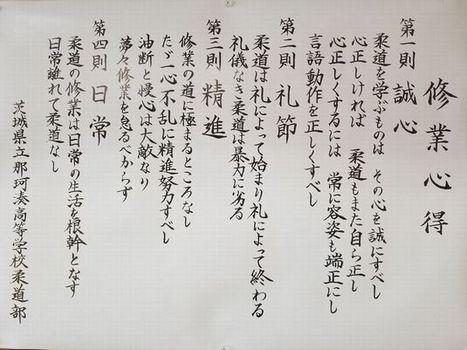 修業心得
第一則 誠心
柔道を学ぶものは その心を誠にすべし
心正しければ 柔道もまた自ら正し
心正しくするには 常に容姿も端正にし
言語動作を正しくすべし
第二則 礼節
柔道は礼によって始まり礼によって終わる
礼儀なき柔道は暴力に劣る
第三則 精進
修業の道に極まるところなし
たゞ一心不乱に精進努力すべし
油断と慢心は大敵なり
夢々修業を怠るべからず
第四則 日常
柔道の修業は日常の生活を根幹となす
日常離れて柔道なし
茨城県立那珂湊高等学校柔道部